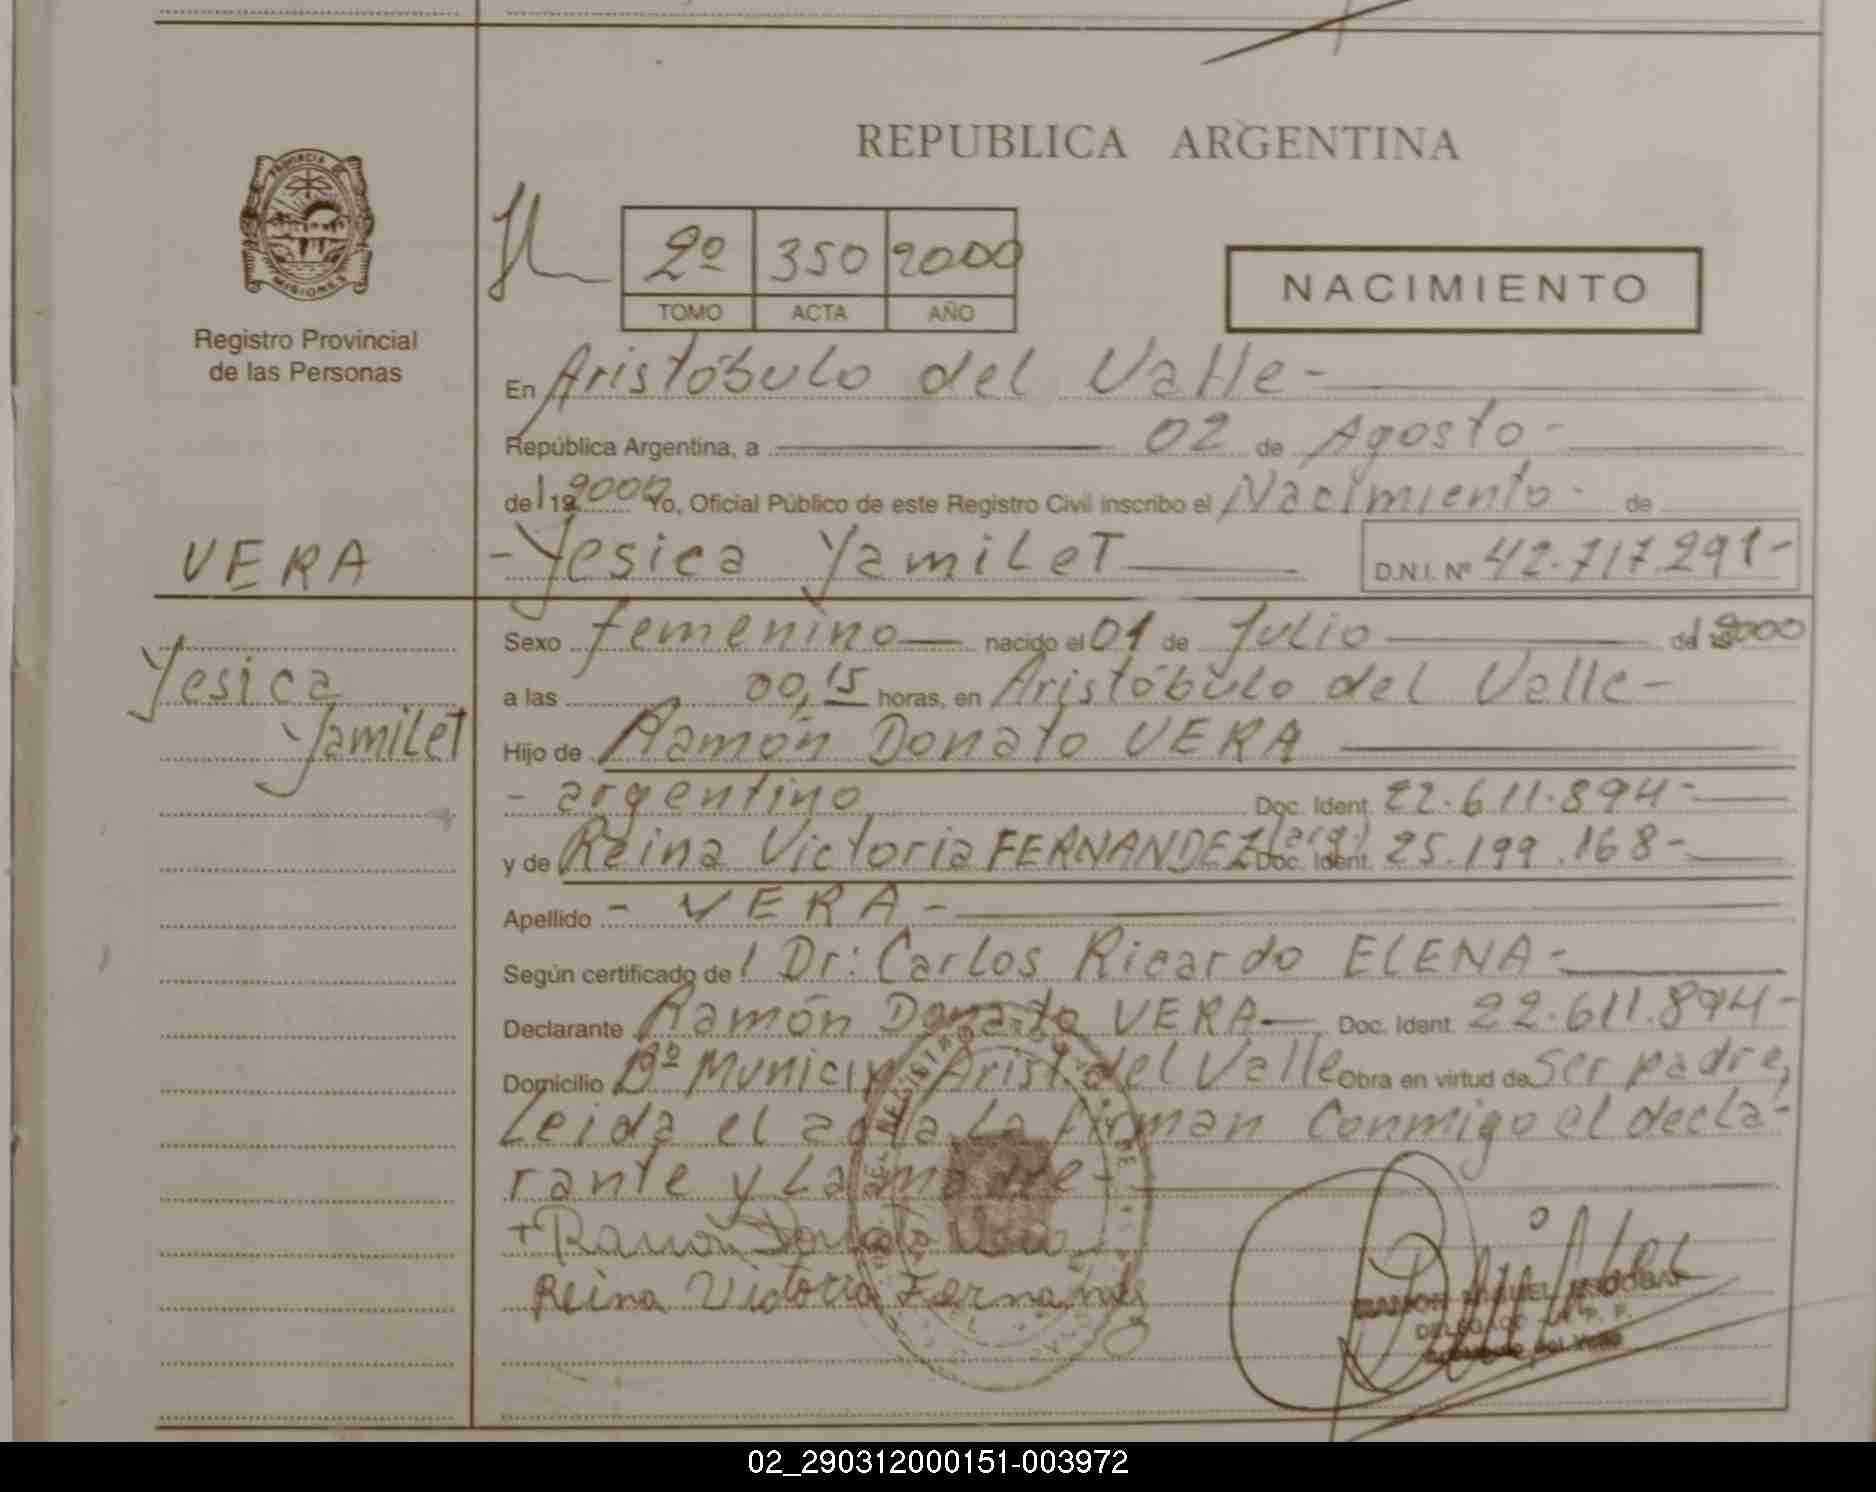 REPUBLICA ARGENTINA
PROVINCIA DE
MISIONES
Registro Provincial
de las Personas
2º 350 2000
TOMO ACTA AÑO
NACIMIENTO
En Aristóbulo del Valle -
República Argentina, a 02 de Agosto -
de 2000 Yo, Oficial Público de este Registro Civil inscribo el Nacimiento - de
VERA
- Yesica Yamilet D.N.I. Nº 42.717.291-
Yesica
Yamilet
Sexo femenino nacido el 01 de Julio de 2000
a las 00,15 horas, en Aristóbulo del Valle -
Hijo de Ramón Donato VERA
- argentino Doc. Ident. 22.611.894-
y de Reina Victoria FERNANDEZ (arg.) Doc. Ident. 25.199.168-
Apellido - VERA -
Según certificado de Dr: Carlos Ricardo ELENA -
Declarante Ramón Donato VERA Doc. Ident. 22.611.894-
Domicilio Bº Municip. Arist. del Valle Obra en virtud de Ser padre,
Leida el acta la firman Conmigo el decla-
rante y La madre -
+ Ramon Donato Vera
Reina Victoria Fernandez
RAMON MIGUEL ESCOBAR
DELEGADO R. P. P.
Aristobulo del Valle
02_290312000151-003972